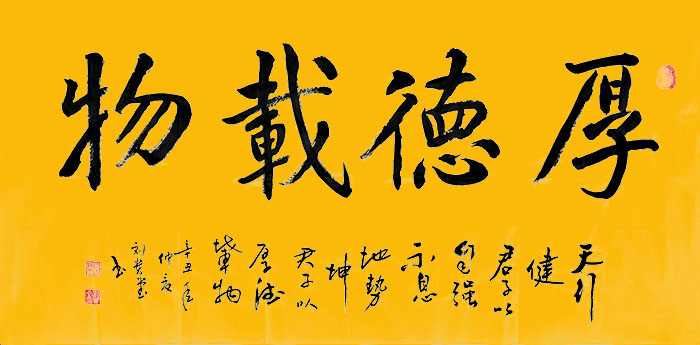 厚德載物
天行
健
君子以
自强
不息
地勢
坤
君子以
厚德
載物
辛丑年
仲夏
刘
书